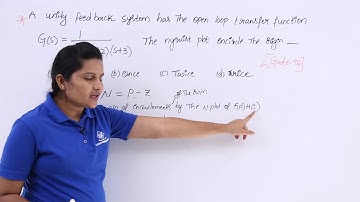 * A unity feedback system has the open loop transfer function
G(s) = 1
)(s+3) The nyquist plot encircle the origin __
[Gate 92]
(b) once (c) Twice (d) Thrice
N = P - Z
of encirclements by The N plot of G(s)H(s)